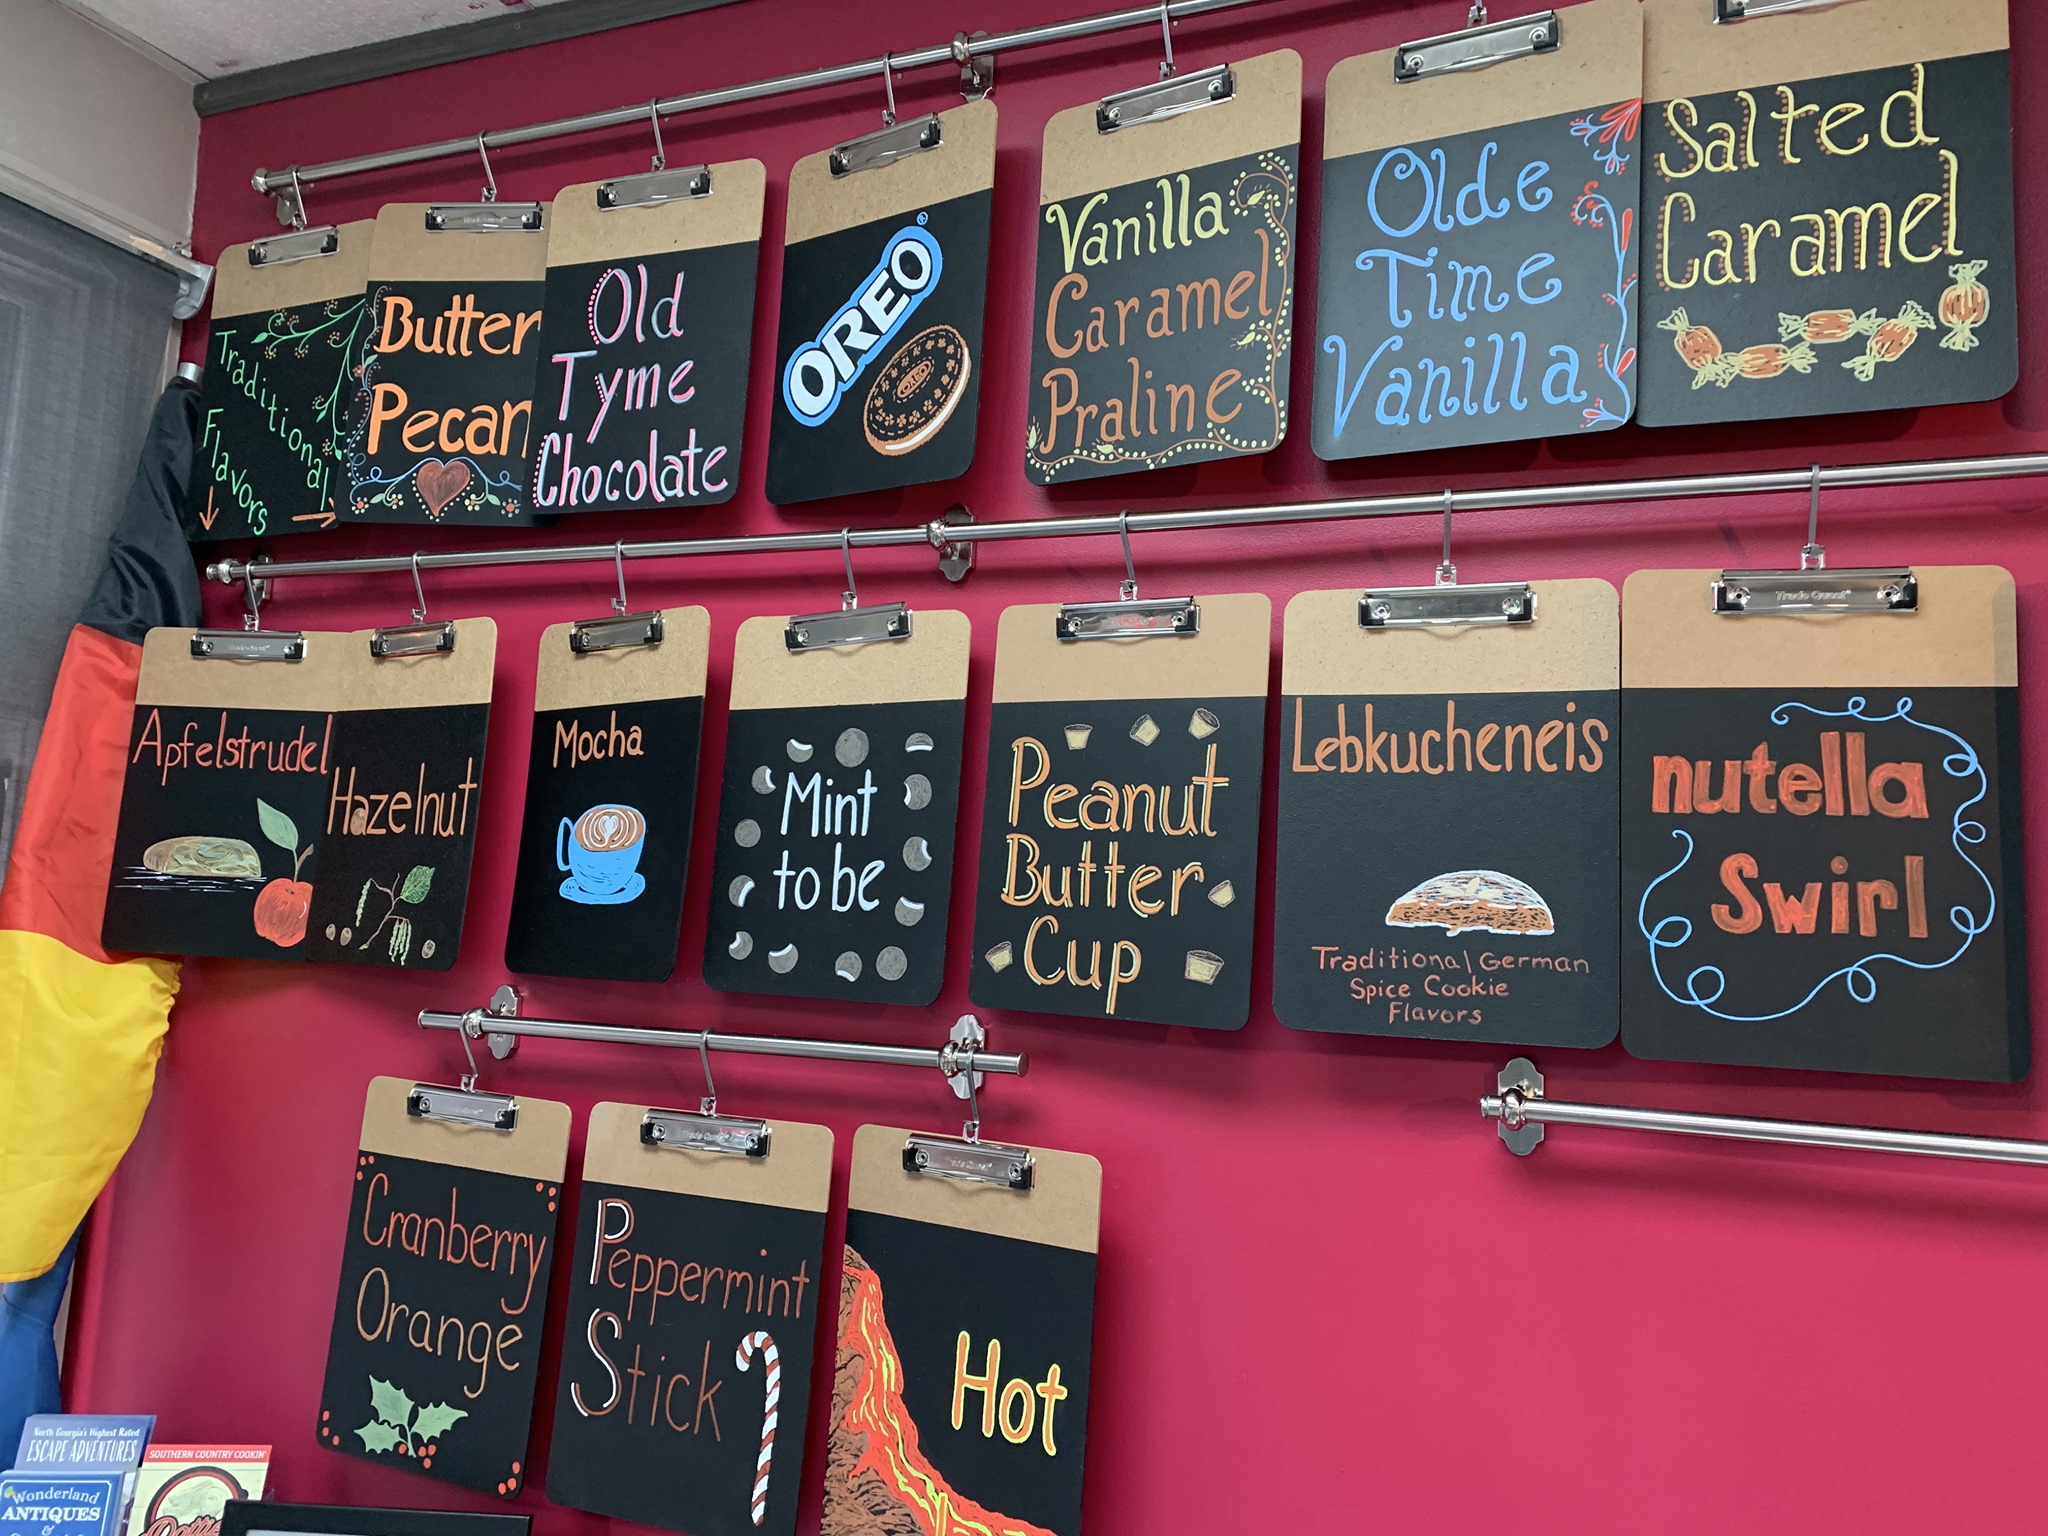 Traditional
Flavors
Butter
Pecan
Old
Tyme
Chocolate
OREO®
OREO
Vanilla
Caramel
Praline
Olde
Time
Vanilla
Salted
Caramel
Apfelstrudel
Hazelnut
Mocha
Mint
to be
Peanut
Butter
Cup
Lebkucheneis
Traditional German
Spice Cookie
Flavors
Trade Quest
nutella
Swirl
Cranberry
Orange
Trade Quest
Peppermint
Stick
Hot
North Georgia's Highest Rated
ESCAPE ADVENTURES
SOUTHERN COUNTRY COOKIN'
Wonderland
ANTIQUES
&